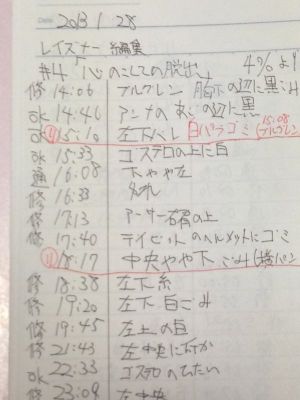 2013/1/28
レイズナー 編集
#4「心のこしての脱出」 4%より
修 14:06 ブルグレン 胸下の辺に黒ゴミ
ok 14:46 アンナのあごの辺に黒
ok 15:10 左下バレ 白パラゴミ (15:08 ブルグレン
ok 15:33 ゴステロの上に白
16:08 下やや左
修 16:33
修 17:13 アーサー右肩の上
修 17:40 デイビットのヘルメットにゴミ
修 18:17 中央やや下 ごみ (横パン
修 18:38 左下 糸
修 19:20 左下 白ごみ
修 19:45 左上の目
修 21:43 左中央に何か
ok 22:33 ゴステロのひたい
修 23:09 左中央